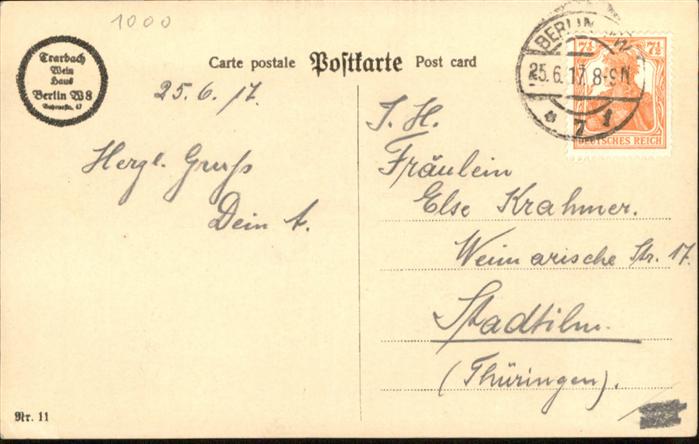 1000
Trarbach
Wein
Haus
Berlin W8
Carte postale Postkarte Post card
BERLIN
25.6.17. 8-9N
* 7 1
7½ 7½
DEUTSCHES REICH
25.6.17.
Herzl. Gruß
Dein A.
Fräulein
Else Krahmer.
Weimarische Str. 17.
Stadtilm.
(Thüringen).
Nr. 11